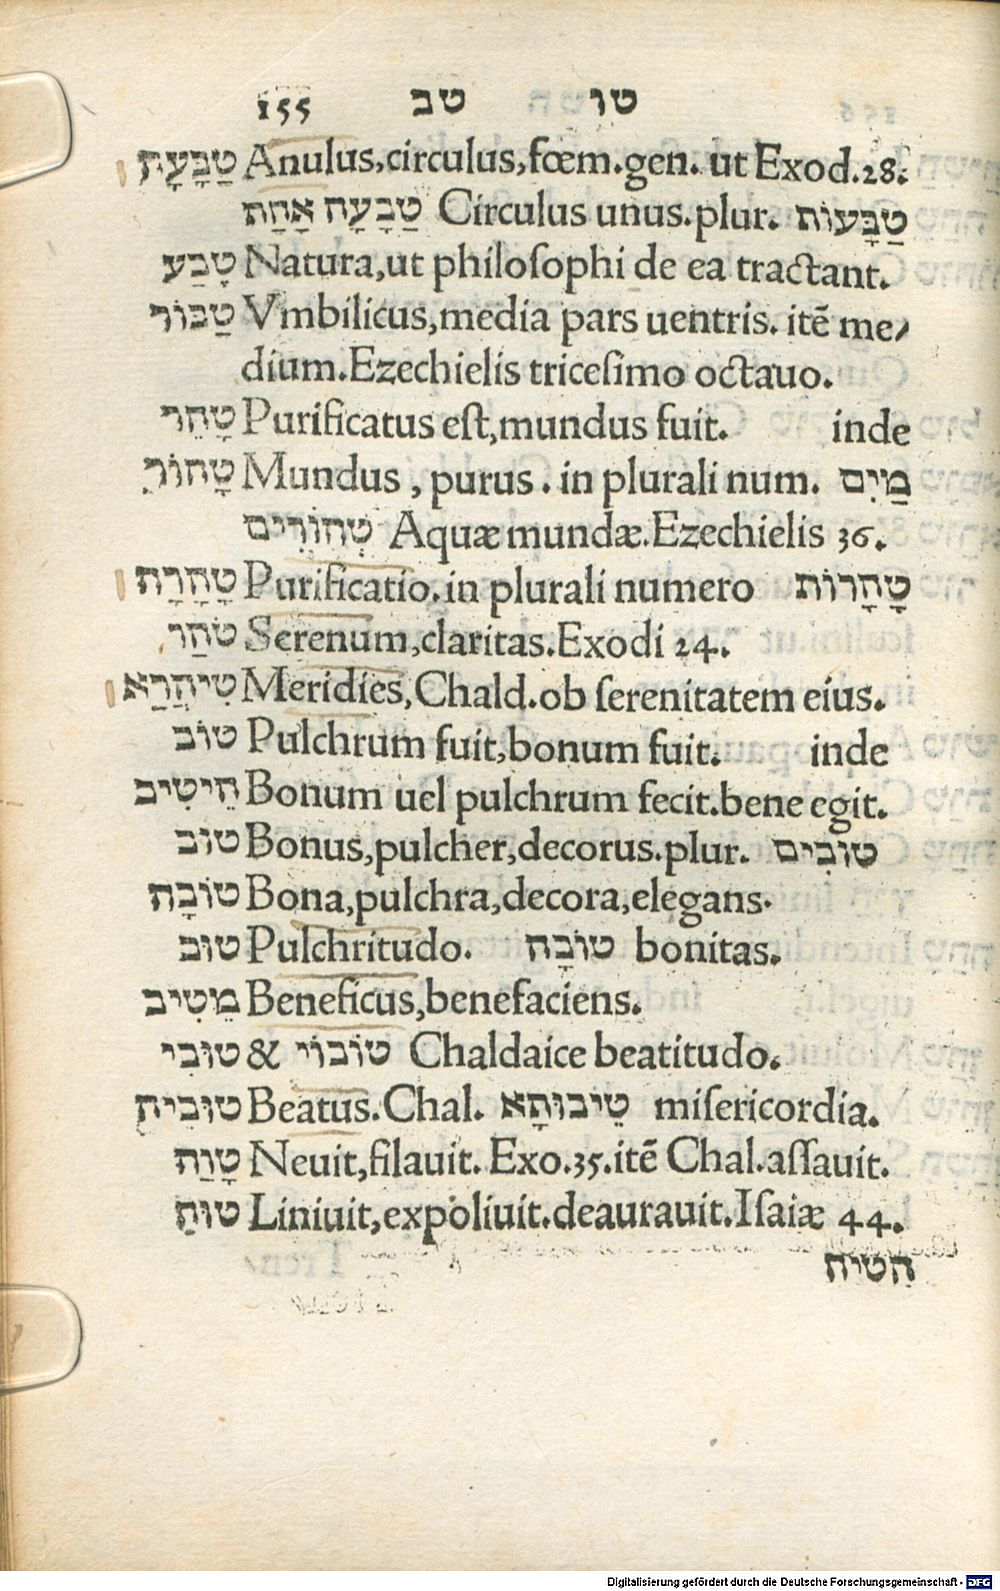 155 טב טו
טַבָּעָת Anulus,circulus,fœm.gen. ut Exod.28.
טַבָּעָה אָחַת Circulus unus.plur. טַבָּעוֹת
טָבַע Natura,ut philosophi de ea tractant.
טַבּוּר Vmbilicus,media pars uentris. itẽ me/
dium.Ezechielis tricesimo octauo.
טָהֵר Purificatus est,mundus fuit. inde
טָהוֹר Mundus , purus . in plurali num. מַיִם
טְהוֹרִים Aquæ mundæ.Ezechielis 36.
טָהָרָה Purificatio.in plurali numero טָהָרוֹת
טֹהַר Serenum,claritas.Exodi 24.
טִיהֲרַא Meridies,Chald.ob serenitatem eius.
טוֹב Pulchrum fuit,bonum fuit. inde
הֵיטִיב Bonum uel pulchrum fecit.bene egit.
טוֹב Bonus,pulcher,decorus.plur. טוֹבִים
טוֹבָה Bona,pulchra,decora,elegans.
טוּב Pulchritudo. טוֹבָה bonitas.
מֵטִיב Beneficus,benefaciens.
טוּבִי & טוֹבוֹי Chaldaice beatitudo.
טוּבִיה Beatus.Chal. טֵיבוּתָא misericordia.
טָוַה Neuit,filauit. Exo.35.itẽ Chal.assauit.
טוּחַ Liniuit,expoliuit.deaurauit.Isaiæ 44.
הֵטִיח
Digitalisierung gefördert durch die Deutsche Forschungsgemeinschaft - DFG